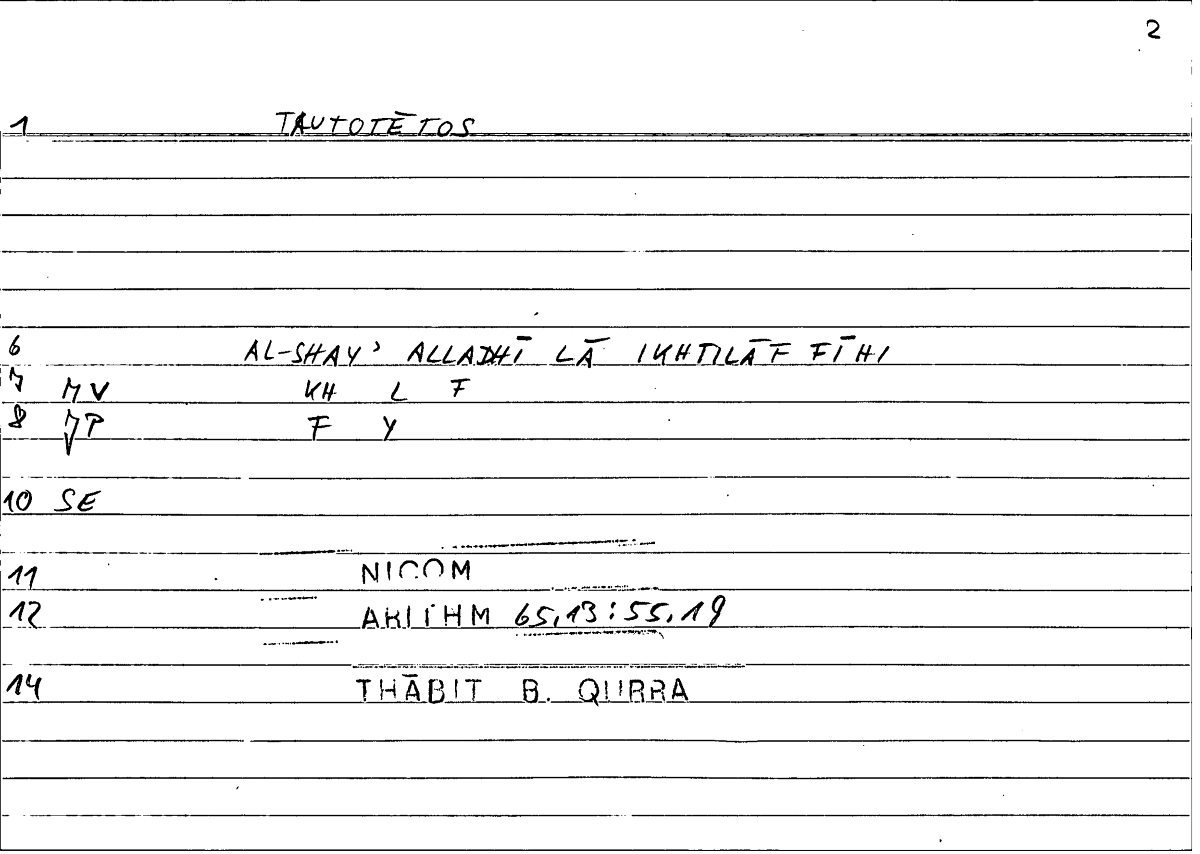 2
1 TAUTOTĒTOS
6 AL-SHAYʾ ALLADHĪ LĀ IKHTILĀF FĪHI
7 MV KH L F
8 JP F Y
10 SE
11 NICOM
12 ARITHM 65,13:55,19
14 THĀBIT B. QURRA